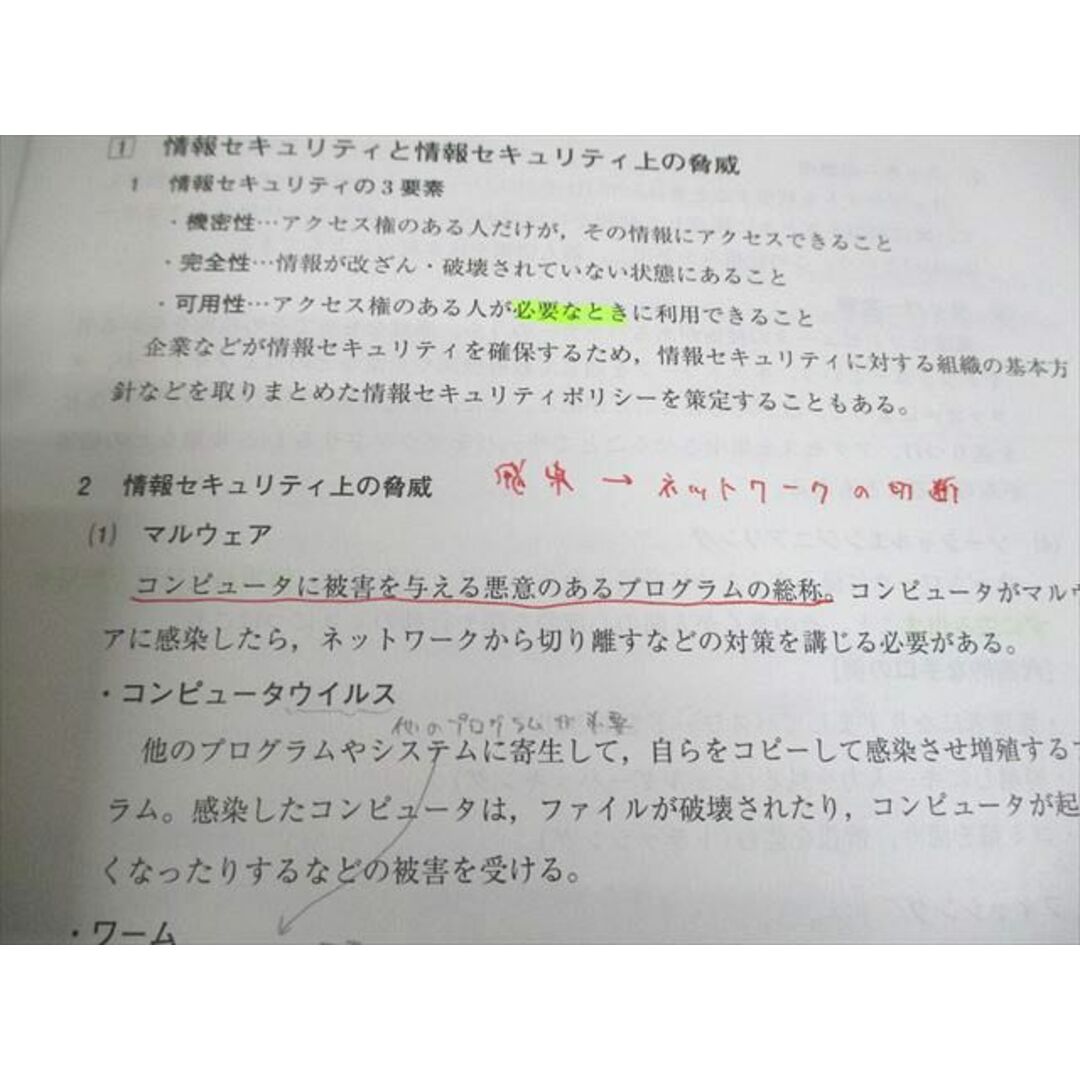 1 情報セキュリティと情報セキュリティ上の脅威
1 情報セキュリティの3要素
・機密性…アクセス権のある人だけが，その情報にアクセスできること
・完全性…情報が改ざん・破壊されていない状態にあること
・可用性…アクセス権のある人が必要なときに利用できること
企業などが情報セキュリティを確保するため，情報セキュリティに対する組織の基本方
針などを取りまとめた情報セキュリティポリシーを策定することもある。
2 情報セキュリティ上の脅威
感染→ネットワークの切断
(1) マルウェア
コンピュータに被害を与える悪意のあるプログラムの総称。コンピュータがマルウ
アに感染したら，ネットワークから切り離すなどの対策を講じる必要がある。
・コンピュータウイルス
他のプログラムが必要
他のプログラムやシステムに寄生して，自らをコピーして感染させ増殖する
ラム。感染したコンピュータは，ファイルが破壊されたり，コンピュータが起
くなったりするなどの被害を受ける。
・ワーム